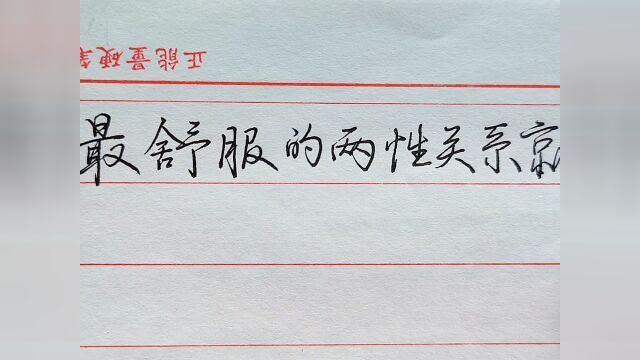 正能量硬笔
最舒服的两性关系